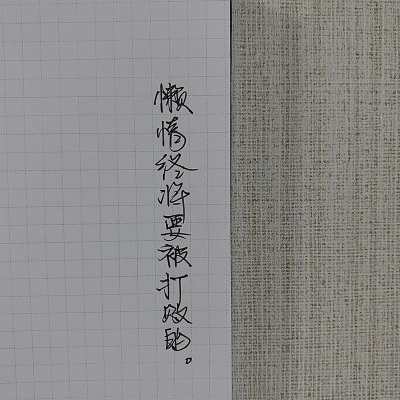 懒惰终将要被打败的。